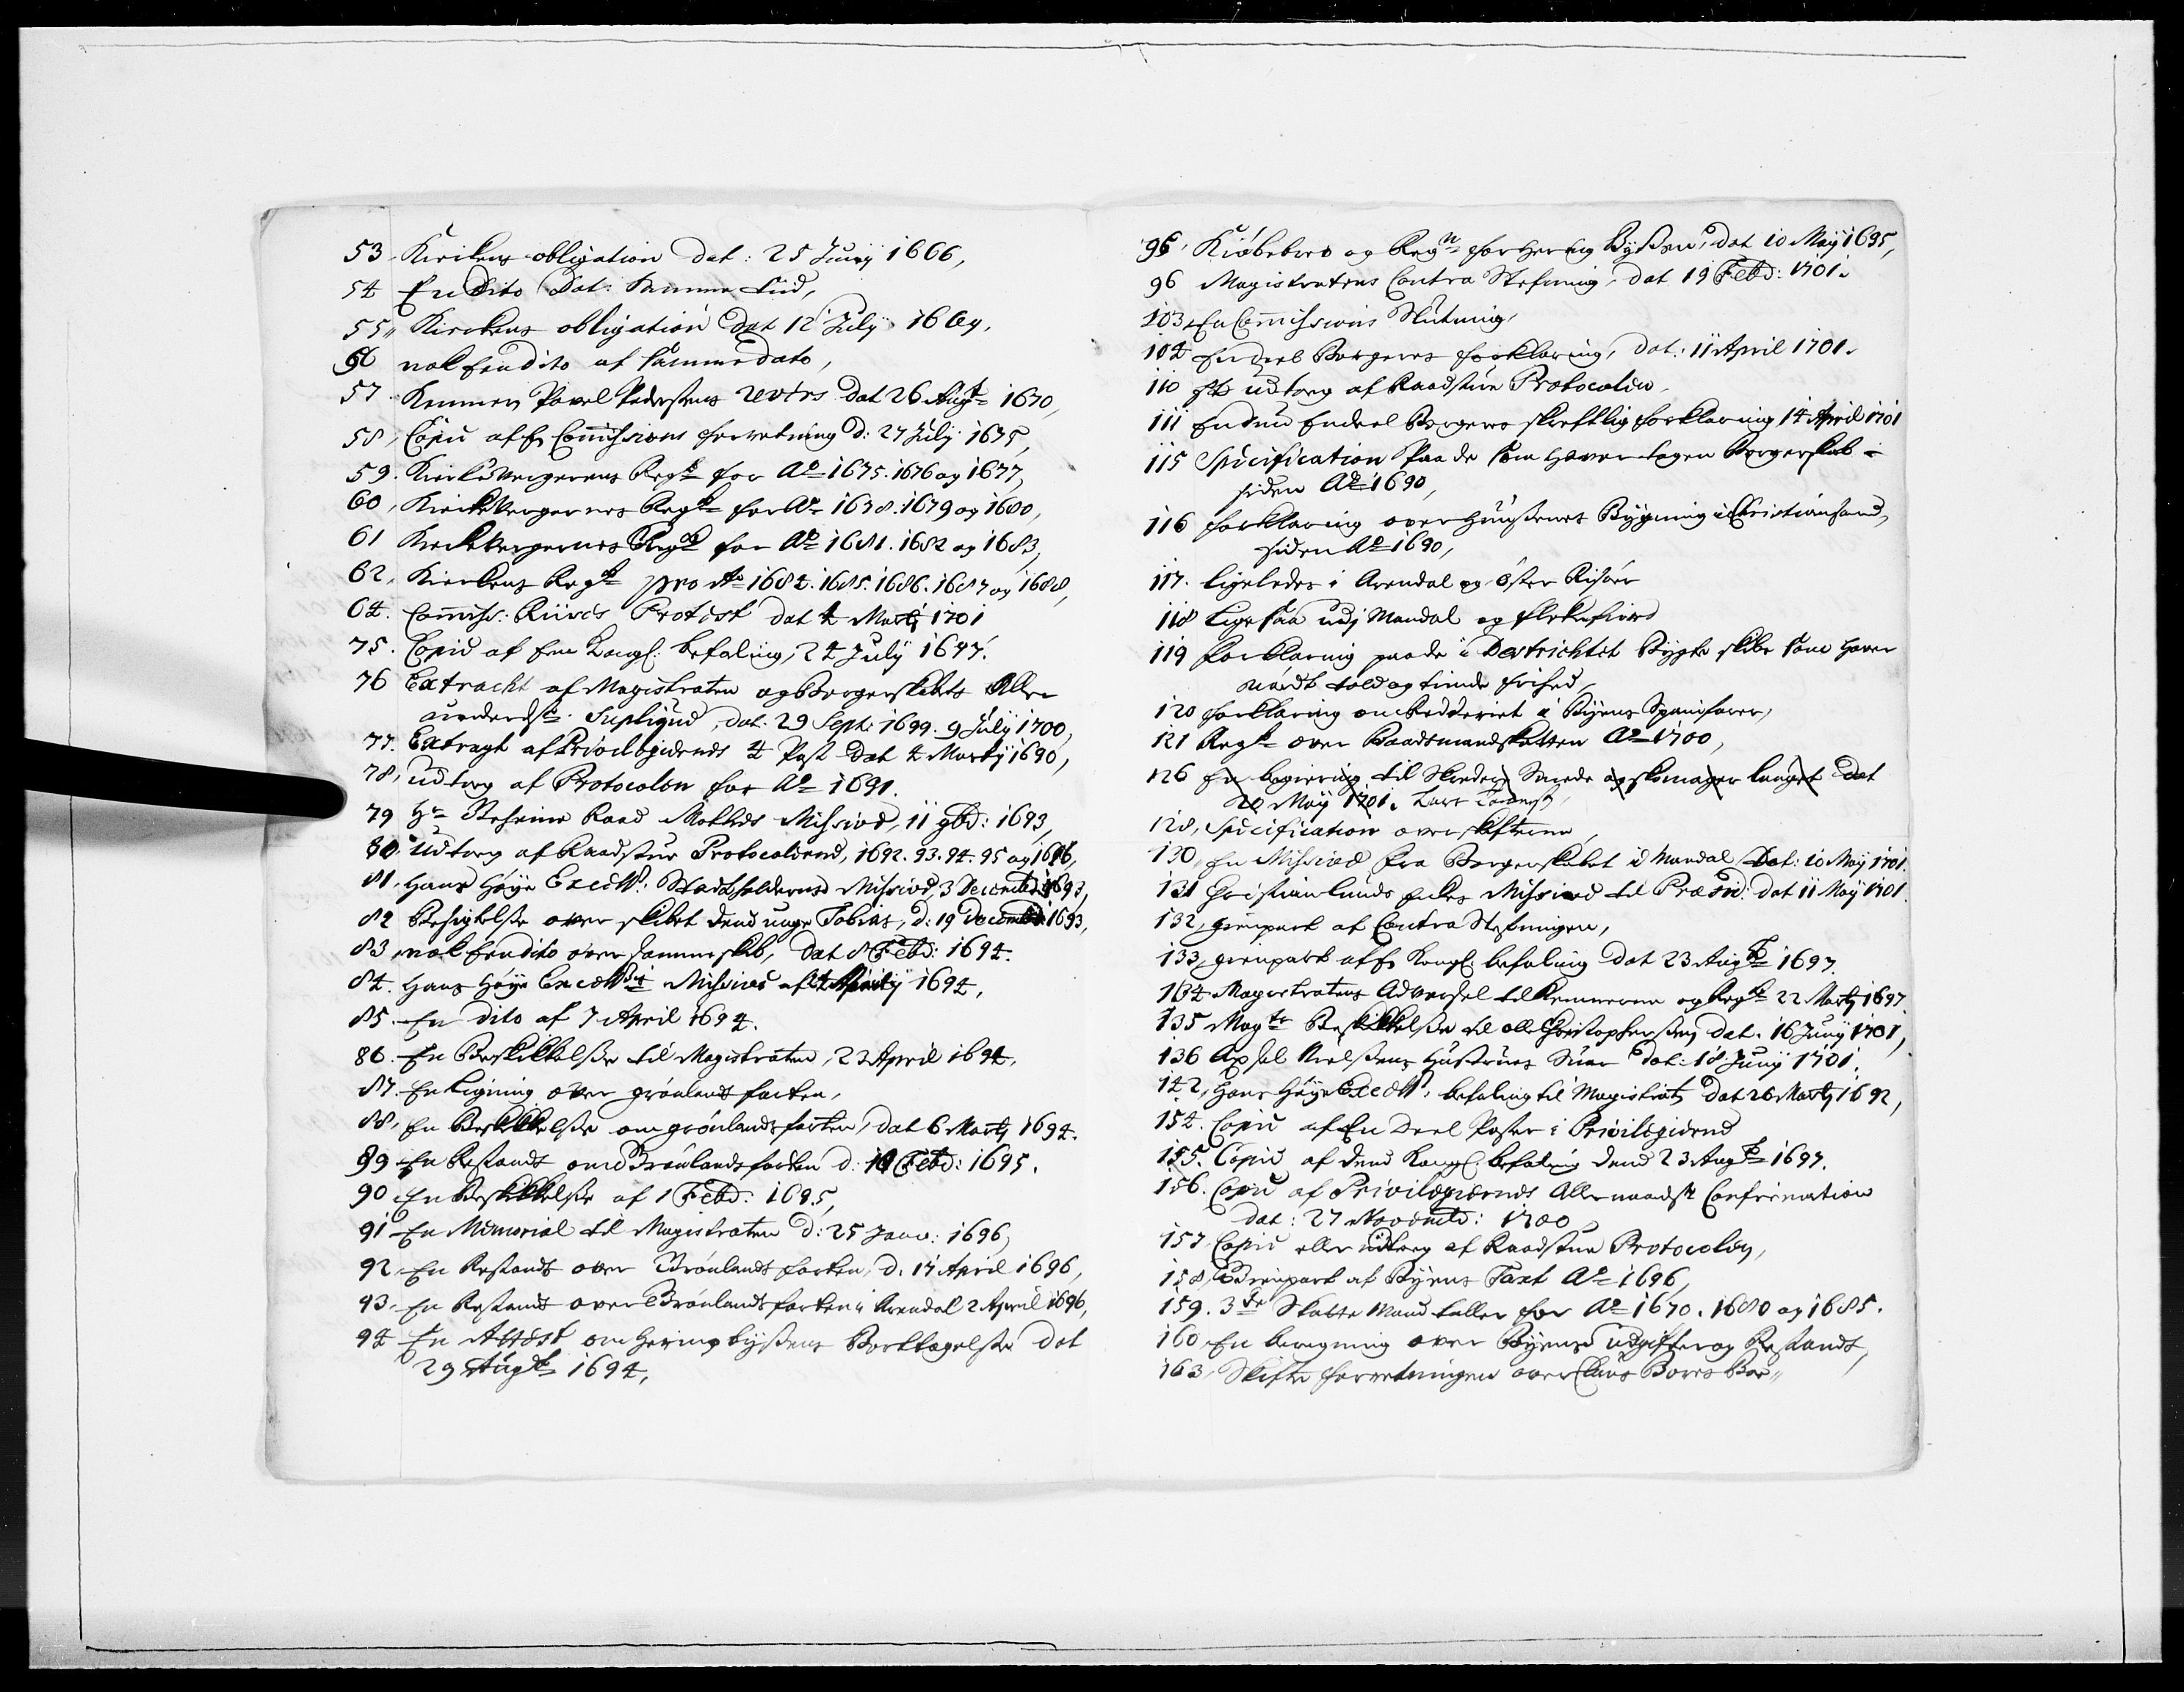 53 Kirkens obligation dat: 25 Junij 1666,
54 En Dito Dat: Samme tiid,
55,, Kirckens obligation Dat 12 July 1669,
56 nok En dito af samme dato,
57 Kemner Povel Pedersens revers Dat 26 Aug: 1670,
58, Copie aff Commissions forretning D: 27 July 1675,
59. Kirkevergernes Regsk for Ao 1675. 1676 og 1677,
60, Kirkevergernes Regsk for Ao 1678. 1679 og 1680,
61 Kirkevergernes Regsk for Ao 1681. 1682 og 1683,
62, Kirkens Regsk pro Ao 1684. 1685. 1686. 1687 og 1688,
64. Commiss: Riises Protest dat 4 Martj 1701
75. Copie af En Kongl: befaling, 24 July 1697.
76 Extracht af Magistraten og Borgerskabets Aller
underdst. Supliqve, dat. 29 Sept: 1699. 9 July 1700,
77. Extragt af Privilegiernes 4 Post Dat 4 Martij 1690,
78, udtog af Protocolen for Ao 1691.
79 Hr Mothes Missive, 11 9bd: 1693,
80 Udtog af Raadstue Protocolerne, 1692. 93. 94. 95 og 1696,
81, Hans Høye Excell: Statholderens Missive, 3 Decembr 1693,
82 Besigtelse over skibet dend unge Tobias, D: 19 Decembr 1693,
83, nok En dito over samme skib, Dat 8 Febd: 1694.
84. Hans Høye Excell: Missive af 1694,
85. En dito af 7 April 1694.
86. En Beskikkelse til Magistraten, 23 April 1694,
87. En Ligning over grønlands farten,
88, En Beskikkelse om grønlandsfarten, dat 6 Martj 1694.
89 En Restants om Grønlandsfarten d: Febd: 1695.
90 En Beskikkelse af 1 Febd: 1695,
91 En Memorial til Magistraten D: 25 Janv: 1696,
92, En Restants over Grønlands farten, D. 17 April 1696,
93, En Restants over Grønlandsfarten i Arendal 2 April 1696,
94 En Attest om Herrings byssens Borttagelse Dat
29 Augst 1694,
95, Kiøbebrev og Regn: for Herring Byssen, dat 10 Maij 1695,
96 Magistratens Contra Stefning, dat 19 Febd: 1701.
103, En Commissions Slutning,
104 En deel Borgeres forklaring, dat: 11 April 1701.
110 Et udtog af Raadstue Protocolen
111 Endnu Endeel Borgeres skrifftlig forklaring 14 April 1701
115 Specification Paa de som haver tagen Borgerskab
siden Ao 1690,
116 forklaring over Huusenes Bygning i Christiansand,
siden Ao 1690,
117. ligeledes i Arendal og Øster Risøer
118 Lige saa udj Mandal og Flekefiord
119 forklaring paa de i Destrichtet Bygte skibe som haver
nÿdt told og tiende frihed,
120 forklaring om Redderiet i Byens Spanifarer,
121 Regsk over Baadsmandskatten Ao 1700,
126 En begiering til Skreder Smede og skomager lauget Dat
20 Maij 1701.
128, Specification over skifterne,
130, En Missive fra Borgerskabet i Mandal Dat: 10 Maij 1701.
131 Christian Lunds Missive til Præsid: dat 11 Maij 1701.
132, gienpart af Contra Stefningen,
133, gienpart aff Kongl: befaling Dat 23 Augst 1697.
134 Magistratens Advarsel til Kemnerne og Regsk 22 Martj 1697.
135 Magts Beskikkelse til Olle Christophersen, dat. 16 Junij 1701,
136 Axsel Nielsens Hustrues Svar Dat: 18. Junij 1701.
142, Hans Høye Excell: befaling til Magistratz Dat 26 Martj 1692,
154. Copie af En Deel Poster i Privilegierne
155. Copie af dend Kongl: befaling dend 23 Augst 1697.
156. Copie af Privilegiernes Allernaadst Confirmation
dat: 27 Novembd: 1700,
157 Copie eller udtog af Raadstue Protocolen,
158, Gienpart af Byens Taxt Ao 1696,
159. 3de Skatte Mandtaller for Ao 1670. 1680 og 1685.
160 En beregning over Byens udgifter og Restants,
163, Skifte forretningen over Claus Bores Boe,,